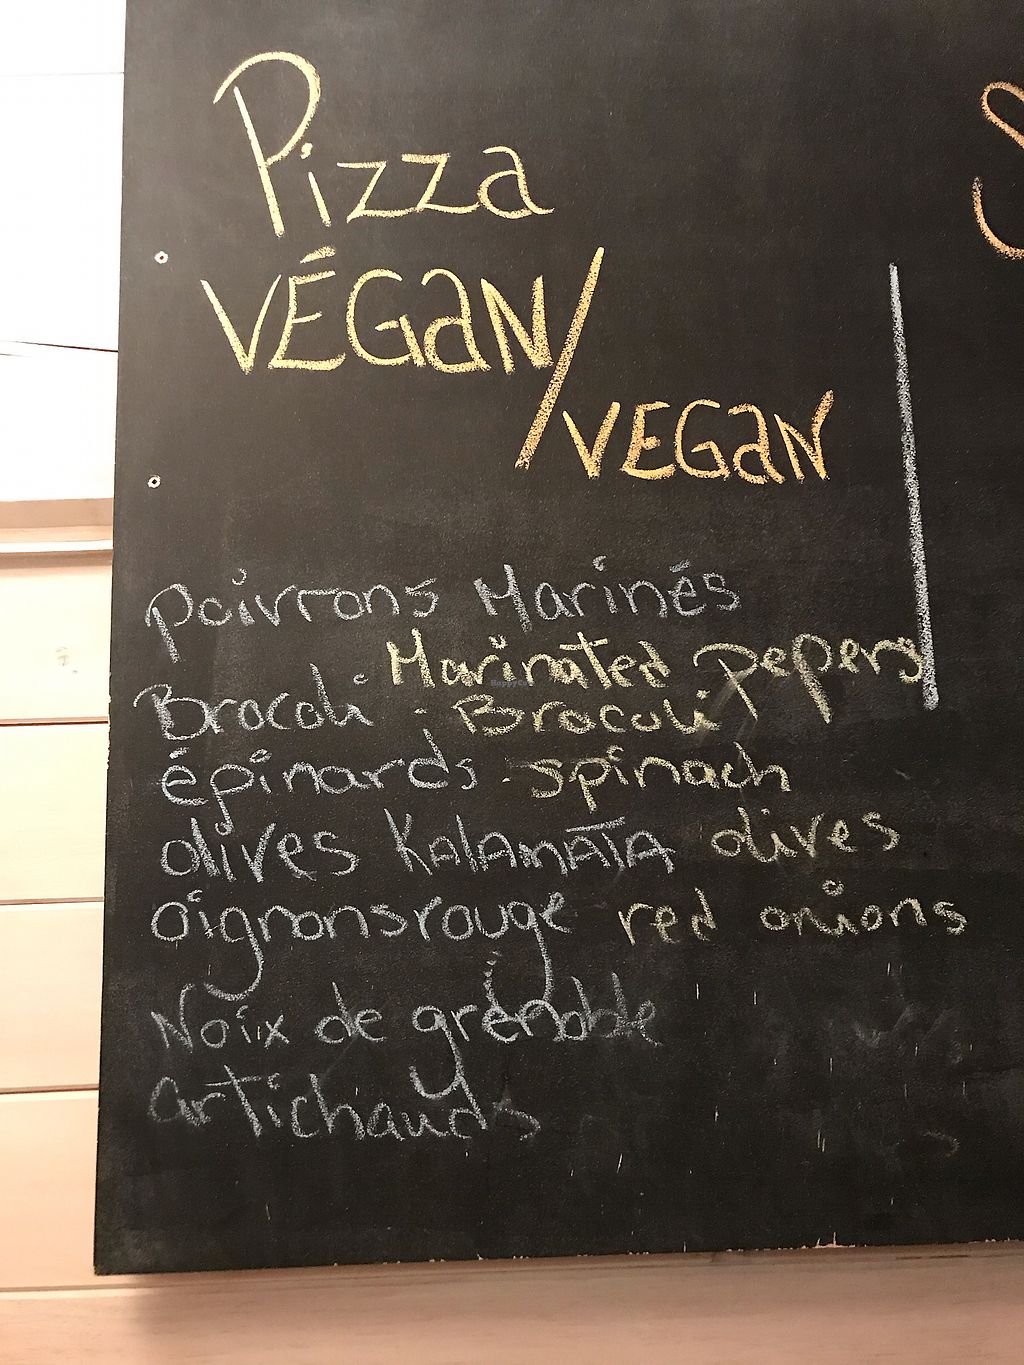 Pizza
VÉGaN/
VEGaN
Poivrons Marinés
Marinated pepers
Brocoli - Brocoli
épinards - spinach
olives KALAMATA olives
oignons rouge red onions
Noix de grenoble
artichauds